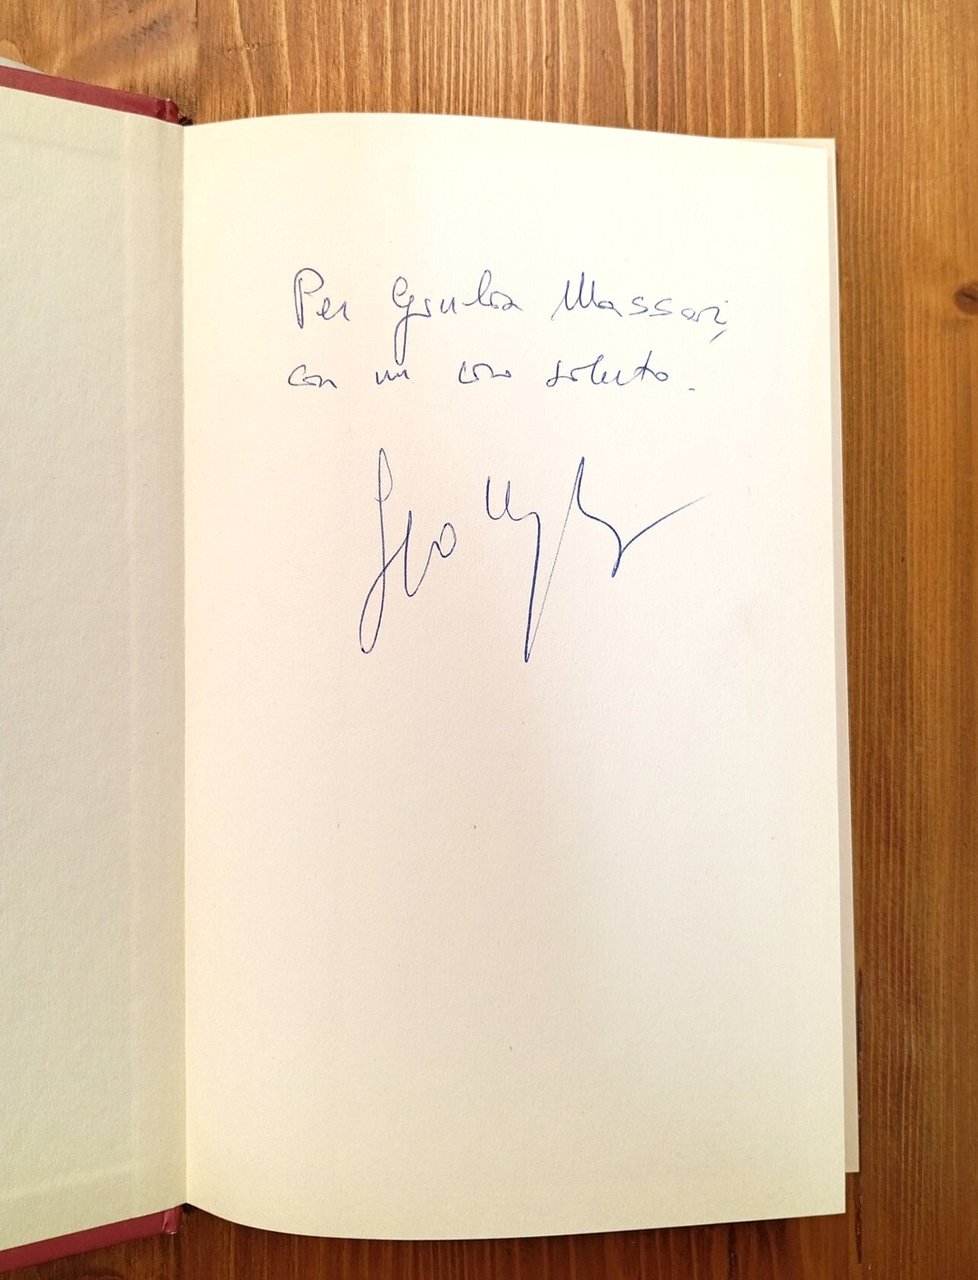 Per Giulia Massari,
con un caro saluto.